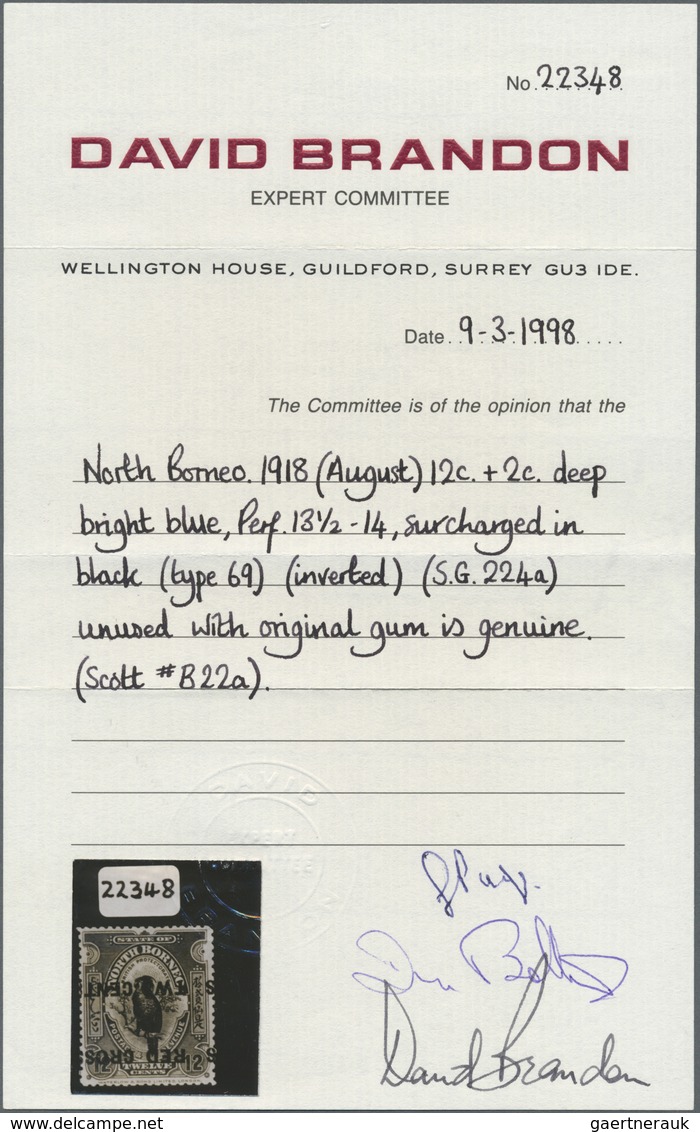 No. 22348
DAVID BRANDON
EXPERT COMMITTEE
WELLINGTON HOUSE, GUILDFORD, SURREY GU3 1DE.
Date 9-3-1998
The Committee is of the opinion that the
North Borneo. 1918 (August) 12c. + 2c. deep
bright blue, Perf. 13½ - 14, surcharged in
black (type 69) (inverted) (S.G. 224a)
unused with original gum is genuine.
(Scott #B22a).
DAVID
22348
STATE OF
NORTH BORNEO
TWO CENTS
RED CROSS
12 12
TWELVE
CENTS
David Brandon
gaertnerauk